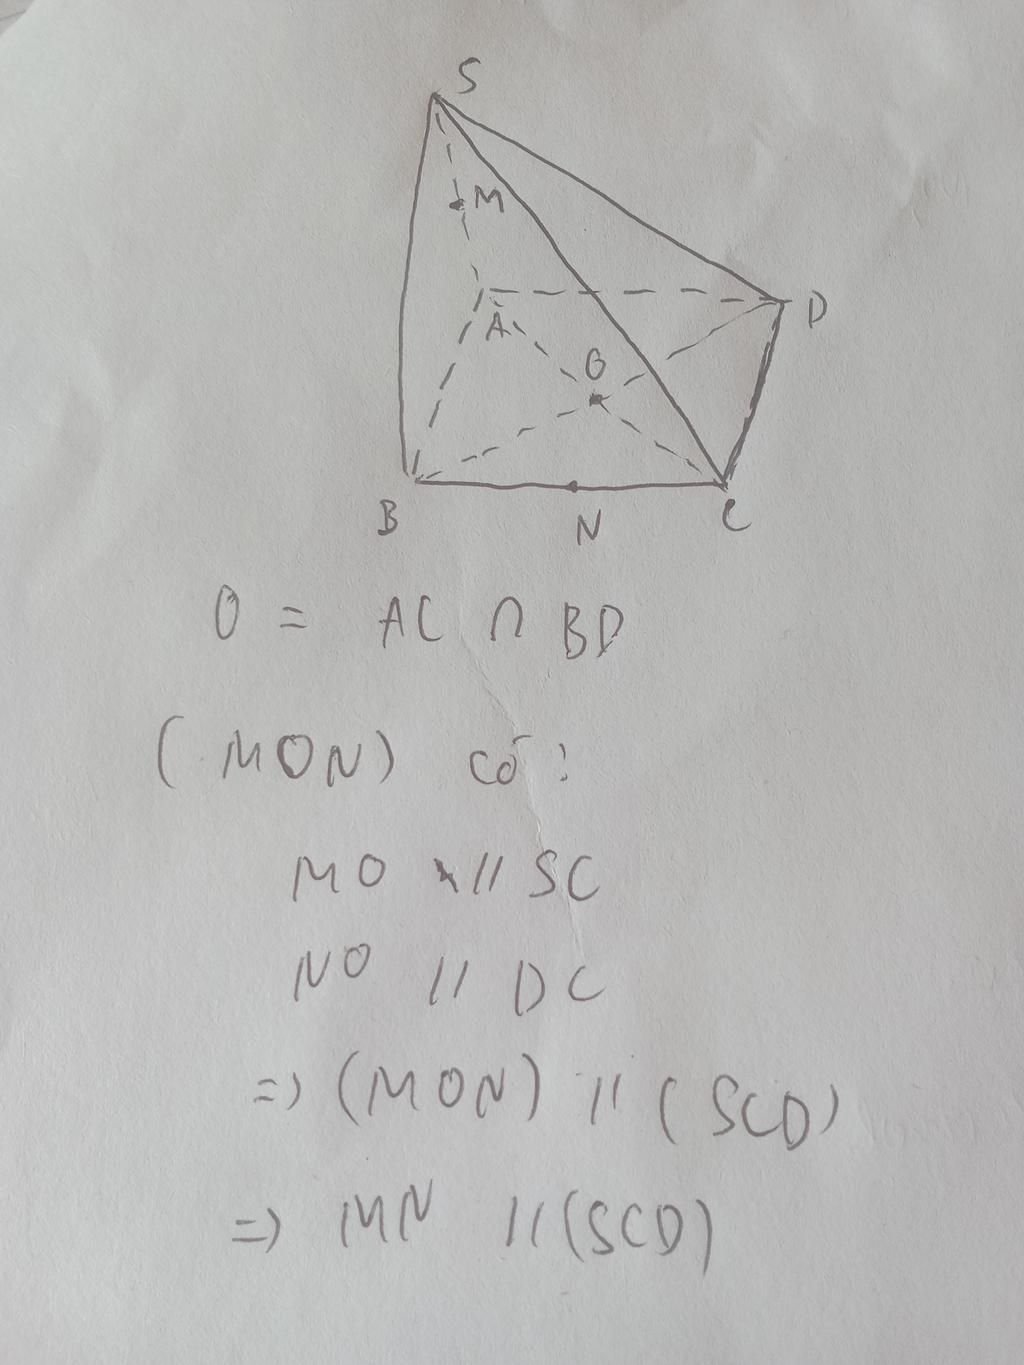 S
M
A
D
O
B
N
C
O = AC ∩ BD
(MON) có :
MO // SC
NO // DC
=> (MON) // (SCD)
=> MN // (SCD)